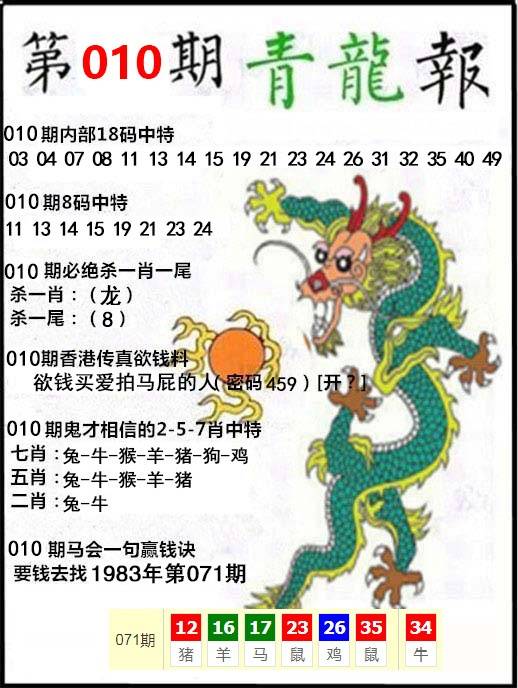 第010期青龍報
010期内部18码中特
03 04 07 08 11 13 14 15 19 21 23 24 26 31 32 35 40 49
010期8码中特
11 13 14 15 19 21 23 24
010期必绝杀一肖一尾
杀一肖：（龙）
杀一尾：（8）
010期香港传真欲钱料
欲钱买爱拍马屁的人(密码459)[开?]
010期鬼才相信的2-5-7肖中特
七肖：兔-牛-猴-羊-猪-狗-鸡
五肖：兔-牛-猴-羊-猪
二肖：兔-牛
010期马会一句赢钱诀
要钱去找1983年第071期
071期 12 16 17 23 26 35 34
猪 羊 马 鼠 鸡 鼠 牛